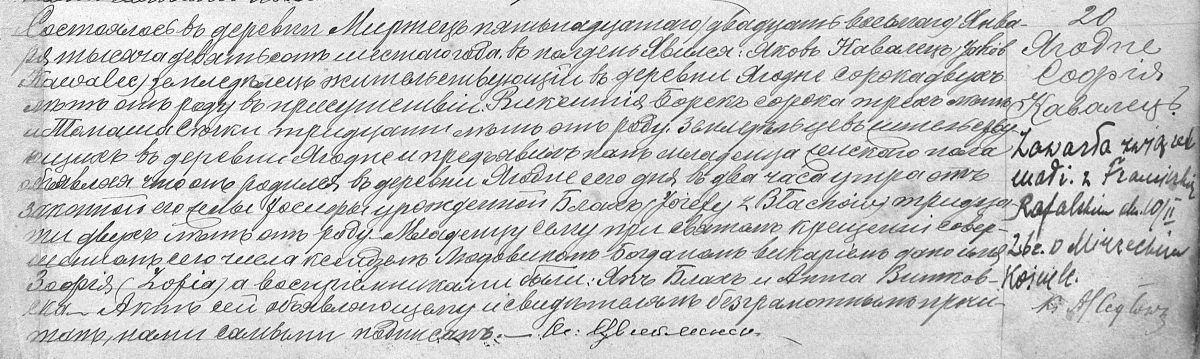 Состоялось въ деревни Миржецъ пятьнадцатаго/двадцать восьмаго/ Янва-
ря тысяча девятьсотъ шестаго года въ полдень. Явился: Яковъ Кавалецъ /Jakób
Kawalec/ земледѣлецъ жительствующій въ деревни Ягодне сорока двухъ
лѣтъ отъ роду въ присутствіи Викентія сорока трехъ лѣтъ
и Томаша тридцати лѣтъ отъ роду земледѣльцевъ жительству-
ющихъ въ деревни Ягодне и предъявилъ намъ младенца женскаго пола
объявляя что онъ родился въ деревни Ягодне сего дня въ два часа утра отъ
законной его жены Іосифы урожденной Блахъ /Józefy z Blachów/ тридца-
ти двухъ лѣтъ отъ роду. Младенцу сему при святомъ крещеніи совер-
шенномъ сего числа ксендзомъ Людовикомъ викаріемъ дано имя
Зофія /Zofia/ а воспріемниками были: Янъ Блахъ и Анна Витков-
ска. Актъ сей объявляющему и свидѣтелямъ безграмотнымъ прочи-
танъ, нами самыми подписанъ. —
20
Ягодне
Софія
Кавалецъ.
Zawarła związek
małż. z Franciszkiem
Rafalskim dn. 10/II
26 r. w Mirzeckim
Kościele.